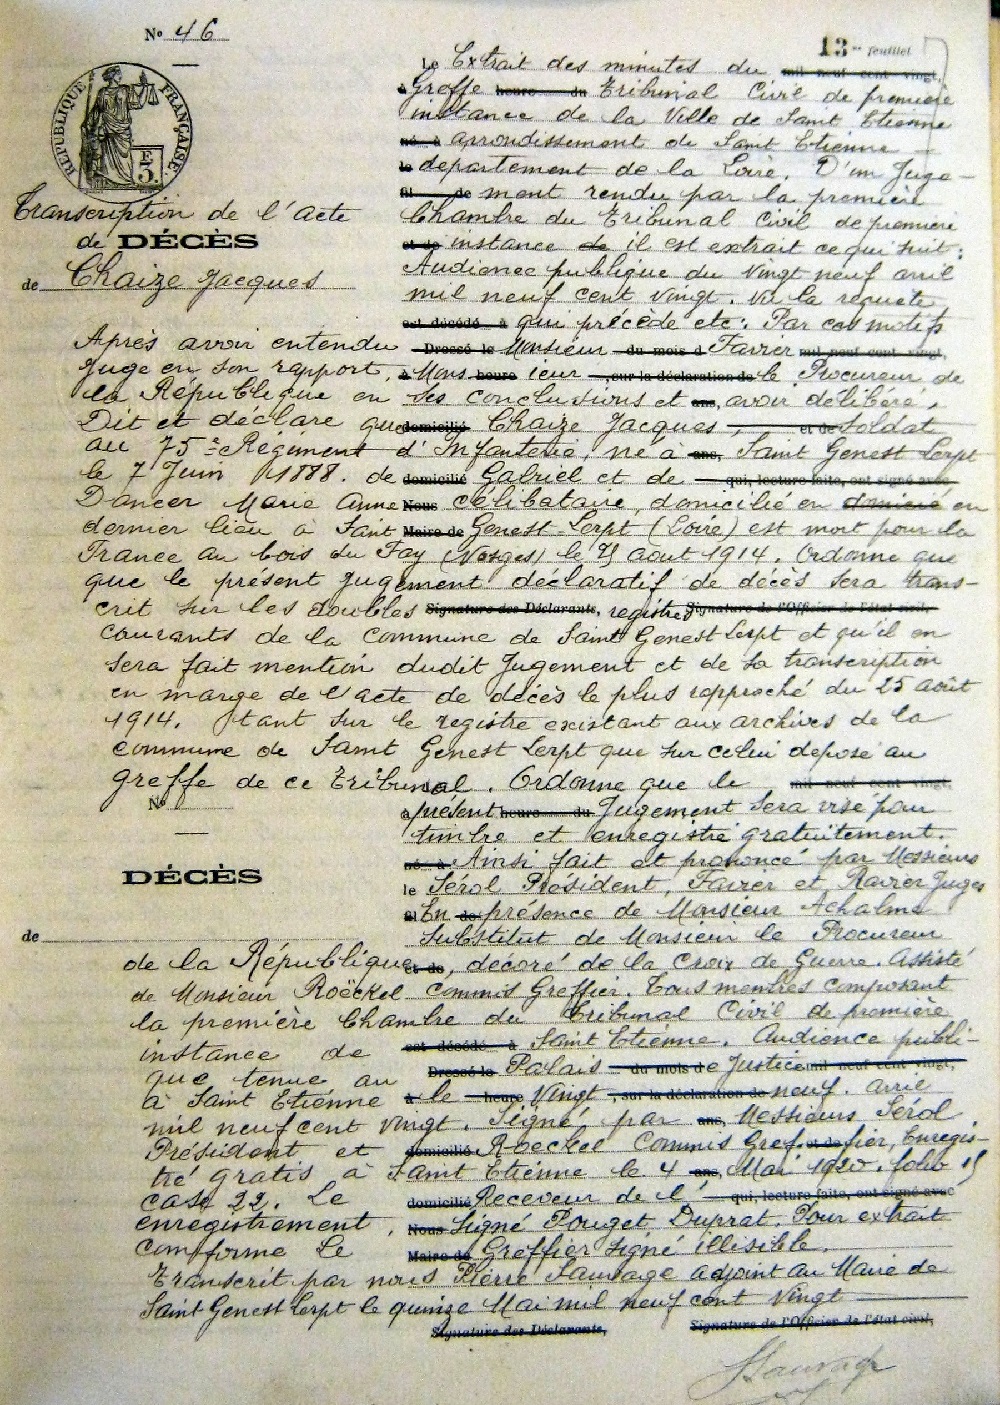 N° 46
13me feuillet
RÉPUBLIQUE FRANÇAISE
E
3.
Transcription de l'acte
de DÉCÈS
de Chaize Jacques
Le Extrait des minutes du mil neuf cent vingt,
à Greffe heure du Tribunal Civil de première
instance de la Ville de Saint Etienne
né à arrondissement de Saint Etienne —
le département de la Loire. D'un Juge-
fil de ment rendu par la première
Chambre du Tribunal Civil de première
et de instance de il est extrait ce qui suit :
Audience publique du Vingt neuf avril
mil neuf cent vingt. Vu la requête
est décédé à qui précède etc : Par ces motifs
Après avoir entendu Dressé le Monsieur du mois d Favier mil neuf cent vingt,
Juge en son rapport, à Mons heure ieur , sur la déclaration de le Procureur de
la République en ses conclusions et ans, avoir délibéré,
Dit et déclare que domicilié Chaize Jacques, et de Soldat
au 75e Régiment d'Infanterie, né à ans, Saint Genest Lerpt
le 7 Juin 1888. de domicilié Gabriel et de qui, lecture faite, ont signé avec
Dancer Marie Anne Nous célibataire, domicilié en domicié en
dernier lieu à Saint Maire de Genest Lerpt (Loire) est mort pour la
France au bois du Fay (Vosges) le 25 août 1914. Ordonne que
que le présent jugement déclaratif de décès sera trans-
crit sur les doubles Signature des Déclarants, registres Signature de l'Officier de l'état civil,
courants de la commune de Saint Genest Lerpt et qu'il en
sera fait mention dudit Jugement et de sa transcription
en marge de l'acte de décès le plus rapproché du 25 août
1914. tant sur le registre existant aux archives de la
commune de Saint Genest Lerpt que sur celui déposé au
greffe de ce Tribunal. Ordonne que le mil neuf cent vingt,
N°
à présent heure du Jugement sera visé pour
timbre et enregistré gratuitement.
né à Ainsi fait et prononcé par Messieurs
DÉCÈS
le Sérol Président, Favier et, Ravier Juges
fil En de présence de Monsieur Achalme
de
Substitut de Monsieur le Procureur
de la République et de, décoré de la Croix de Guerre. Assisté
de Monsieur Roëckel commis Greffier. Tous membres composant
la première Chambre du Tribunal Civil de première
instance de est décédé à Saint Etienne. Audience publi-
que tenue au Dressé le Palais du mois de Justice mil neuf cent vingt,
à Saint Etienne à le heure Vingt , sur la déclaration de neuf. avril
mil neuf cent vingt. Signé par ans, Messieurs Sérol
Président et domicilié Roeckel Commis Gref. et de fier, Enregis-
tré gratis à Saint Etienne le 4 ans, Mai 1920. folio 15
case 22. Le domicilié Receveur de l' qui, lecture faite, ont signé avec
enregistrement. Nous Signé Pouget Duprat. Pour extrait
conforme Le Maire de Greffier signé illisible.
Transcrit par nous Pierre Sauvage adjoint au Maire de
Saint Genest Lerpt le quinze Mai mil neuf cent vingt
Signature des Déclarants, Signature de l'Officier de l'état civil,
Sauvage